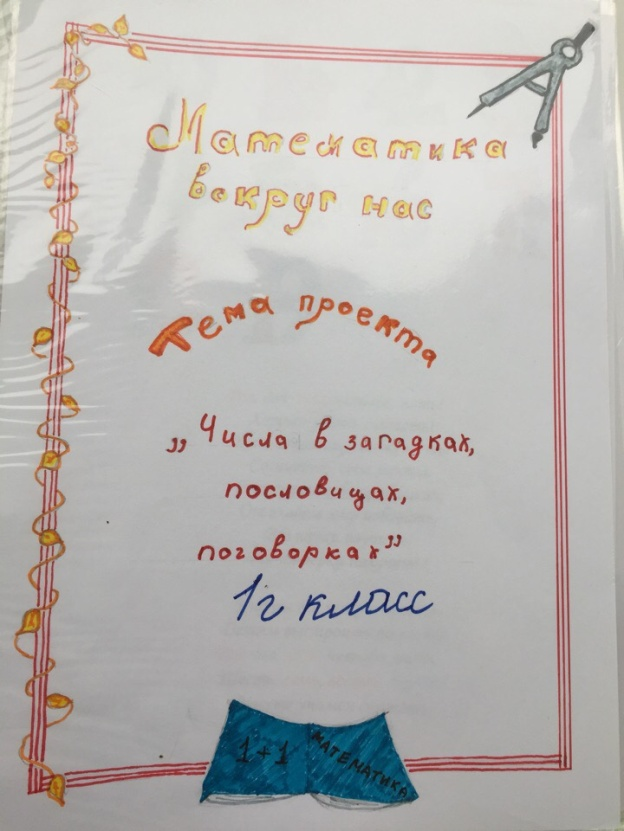 Математика
вокруг нас
Тема проекта
„Числа в загадках,
пословищах,
поговорках”
1г класс
1+1
МАТЕМАТИКА